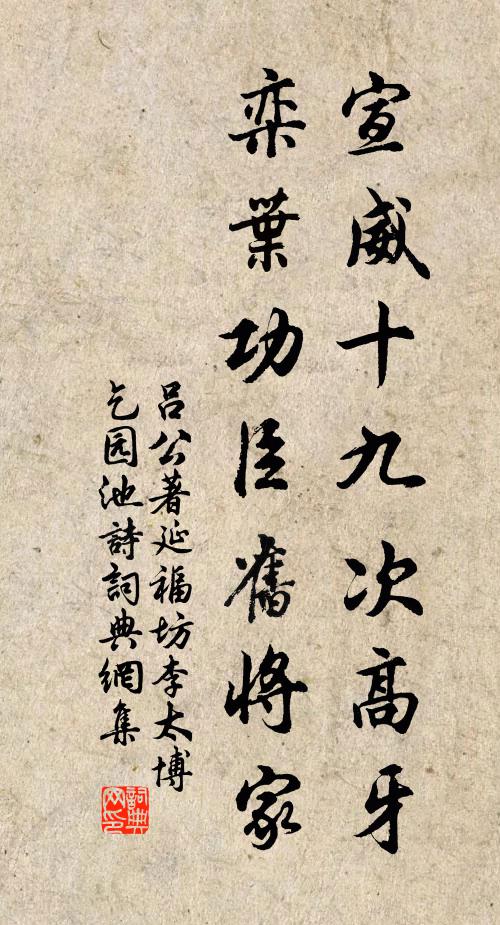 宣威十九次高牙
奕葉功臣舊將家
吕公著延福坊李太博
乞园池詩詞典網集
詞典网印